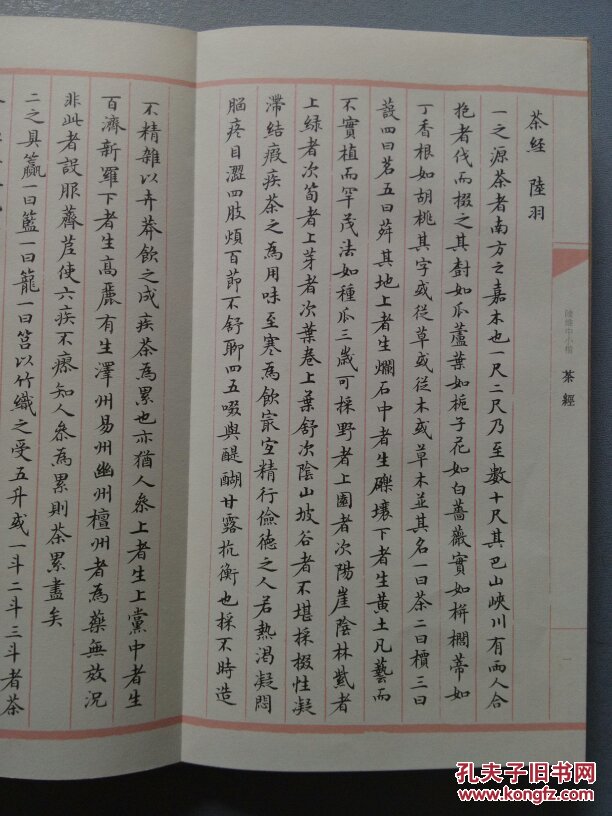 茶经 陸羽
一之源茶者南方之嘉木也一尺二尺乃至數十尺其巴山峽川有兩人合
抱者伐而掇之其樹如瓜蘆葉如梔子花如白薔薇實如栟櫚蒂如
丁香根如胡桃其字或從草或從木或草木並其名一曰茶二曰檟三曰
蔎四曰茗五曰荈其地上者生爛石中者生礫壤下者生黃土凡藝而
不實植而罕茂法如種瓜三歲可採野者上園者次陽崖陰林紫者
上绿者次筍者上芽者次葉卷上葉舒次陰山坡谷者不堪採掇性凝
滯結瘕疾茶之為用味至寒為飲最宜精行儉德之人若熱渴凝悶
腦疼目澀四肢煩百節不舒聊四五啜與醍醐甘露抗衡也採不時造
不精雜以卉莽飲之成疾茶為累也亦猶人參上者生上黨中者生
百濟新羅下者生高麗有生澤州易州幽州檀州者為藥無效況
非此者設服薺苨使六疾不瘳知人參為累則茶累盡矣
二之具籯一曰籃一曰籠一曰筥以竹織之受五升或一斗二斗三斗者茶
陸維中小楷 茶經
一
孔夫子旧书网